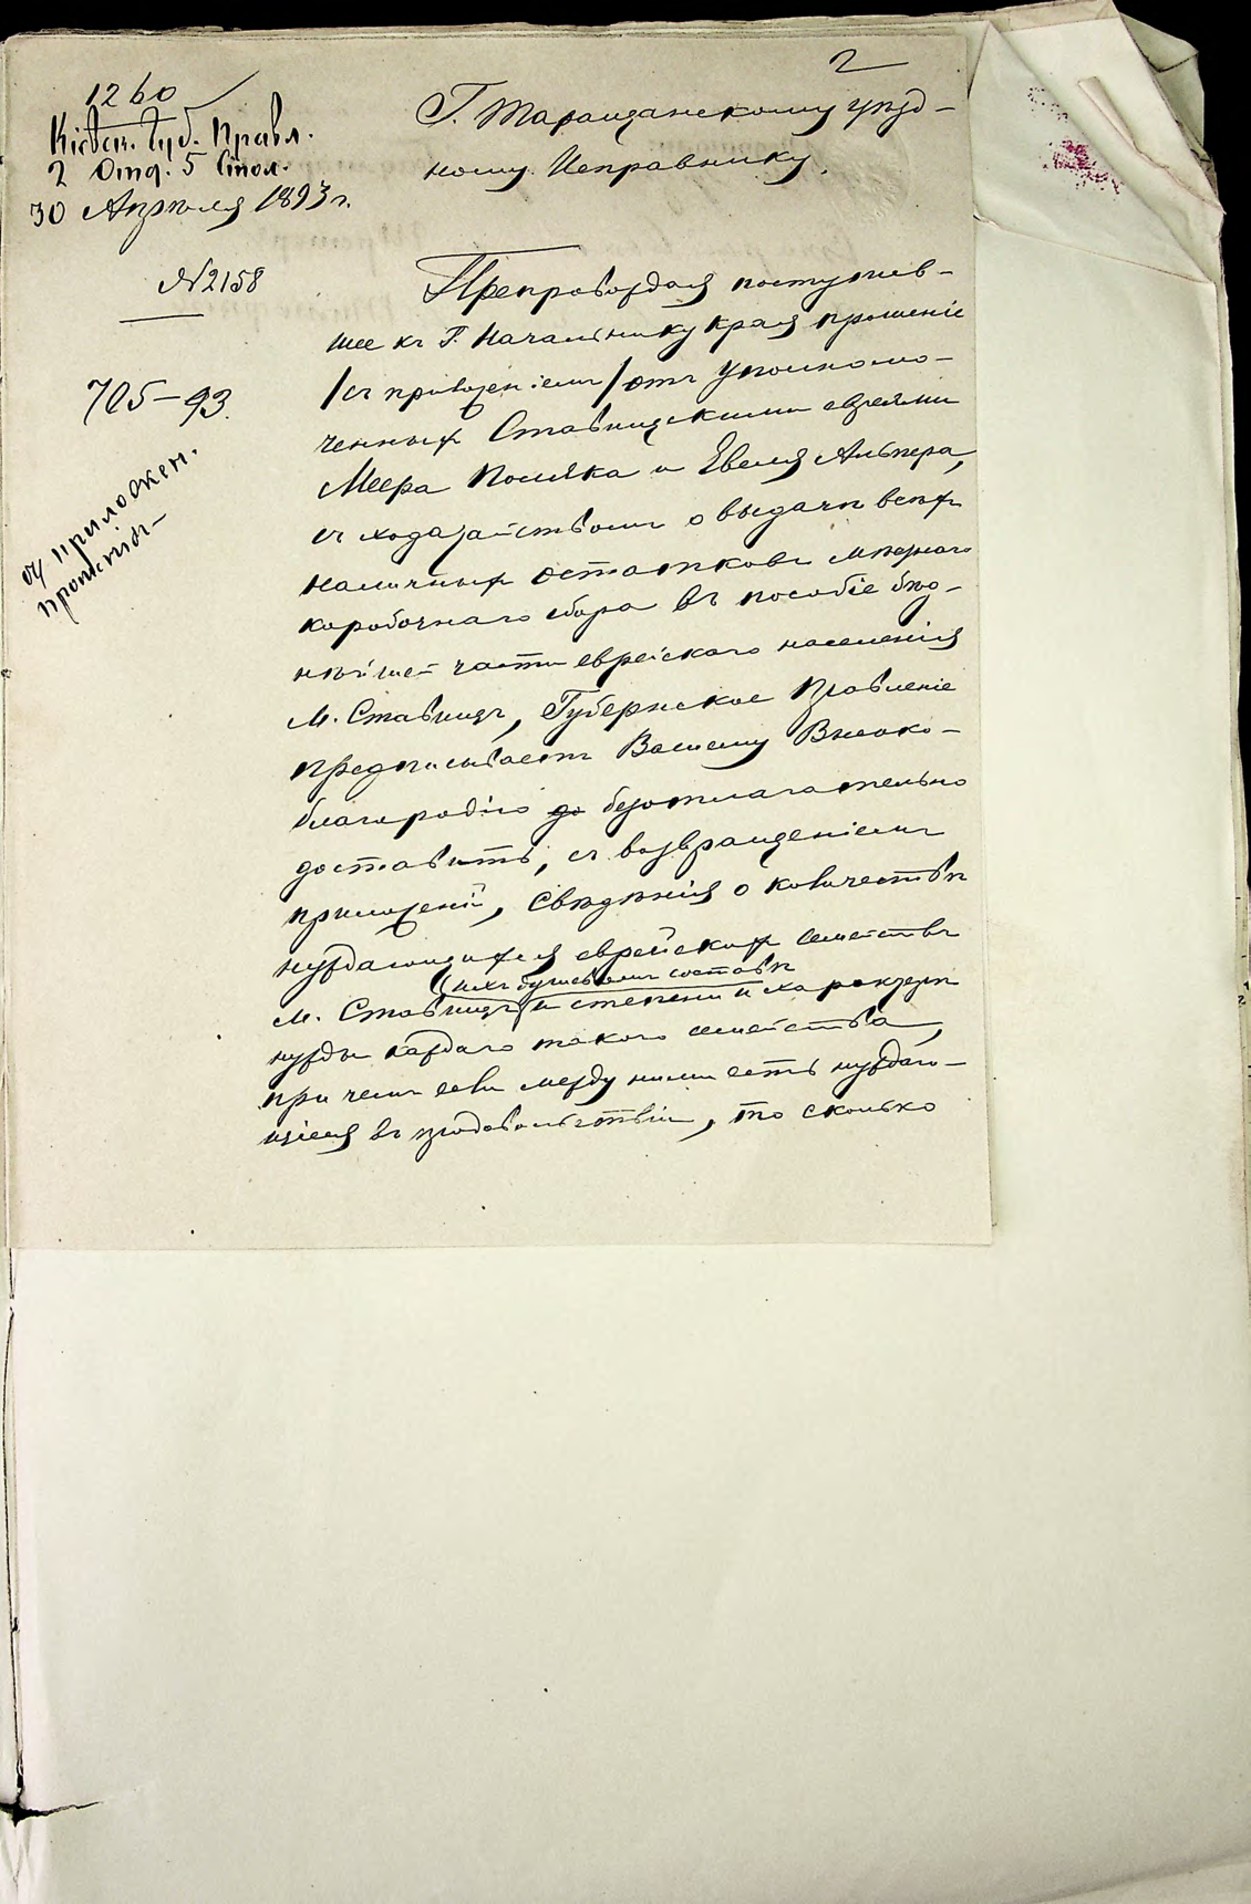 2
1260
Кіевск. Губ. Правл.
2 Отд. 5 Стол.
30 Апрѣля 1893 г.
№ 2158
705-93.
съ приложен.
прошенія
Г. Таращанскому уѣзд-
ному Исправнику.
Препровождая поступив-
шее къ Г. Начальнику края прошеніе
/съ приложеніемъ/ отъ уполномо-
ченныхъ Ставищскими евреями
Меера Поляка и Евеля Альпера,
съ ходатайствомъ о выдачѣ всѣхъ
наличныхъ остатковъ мѣстнаго
коробочнаго сбора въ пособіе бѣд-
нѣйшей части еврейскаго населенія
м. Ставищъ, Губернское Правленіе
предписываетъ Вашему Высоко-
благородію до безотлагательно
доставить, съ возвращеніемъ
приложеній, свѣдѣнія о количествѣ
нуждающихся еврейскихъ семействъ
(ихъ душевомъ составѣ
м. Ставищъ и степени и характерѣ
нужды каждаго такого семейства,
при чемъ если между ними есть нуждаю-
щіеся въ продовольствіи, то сколько